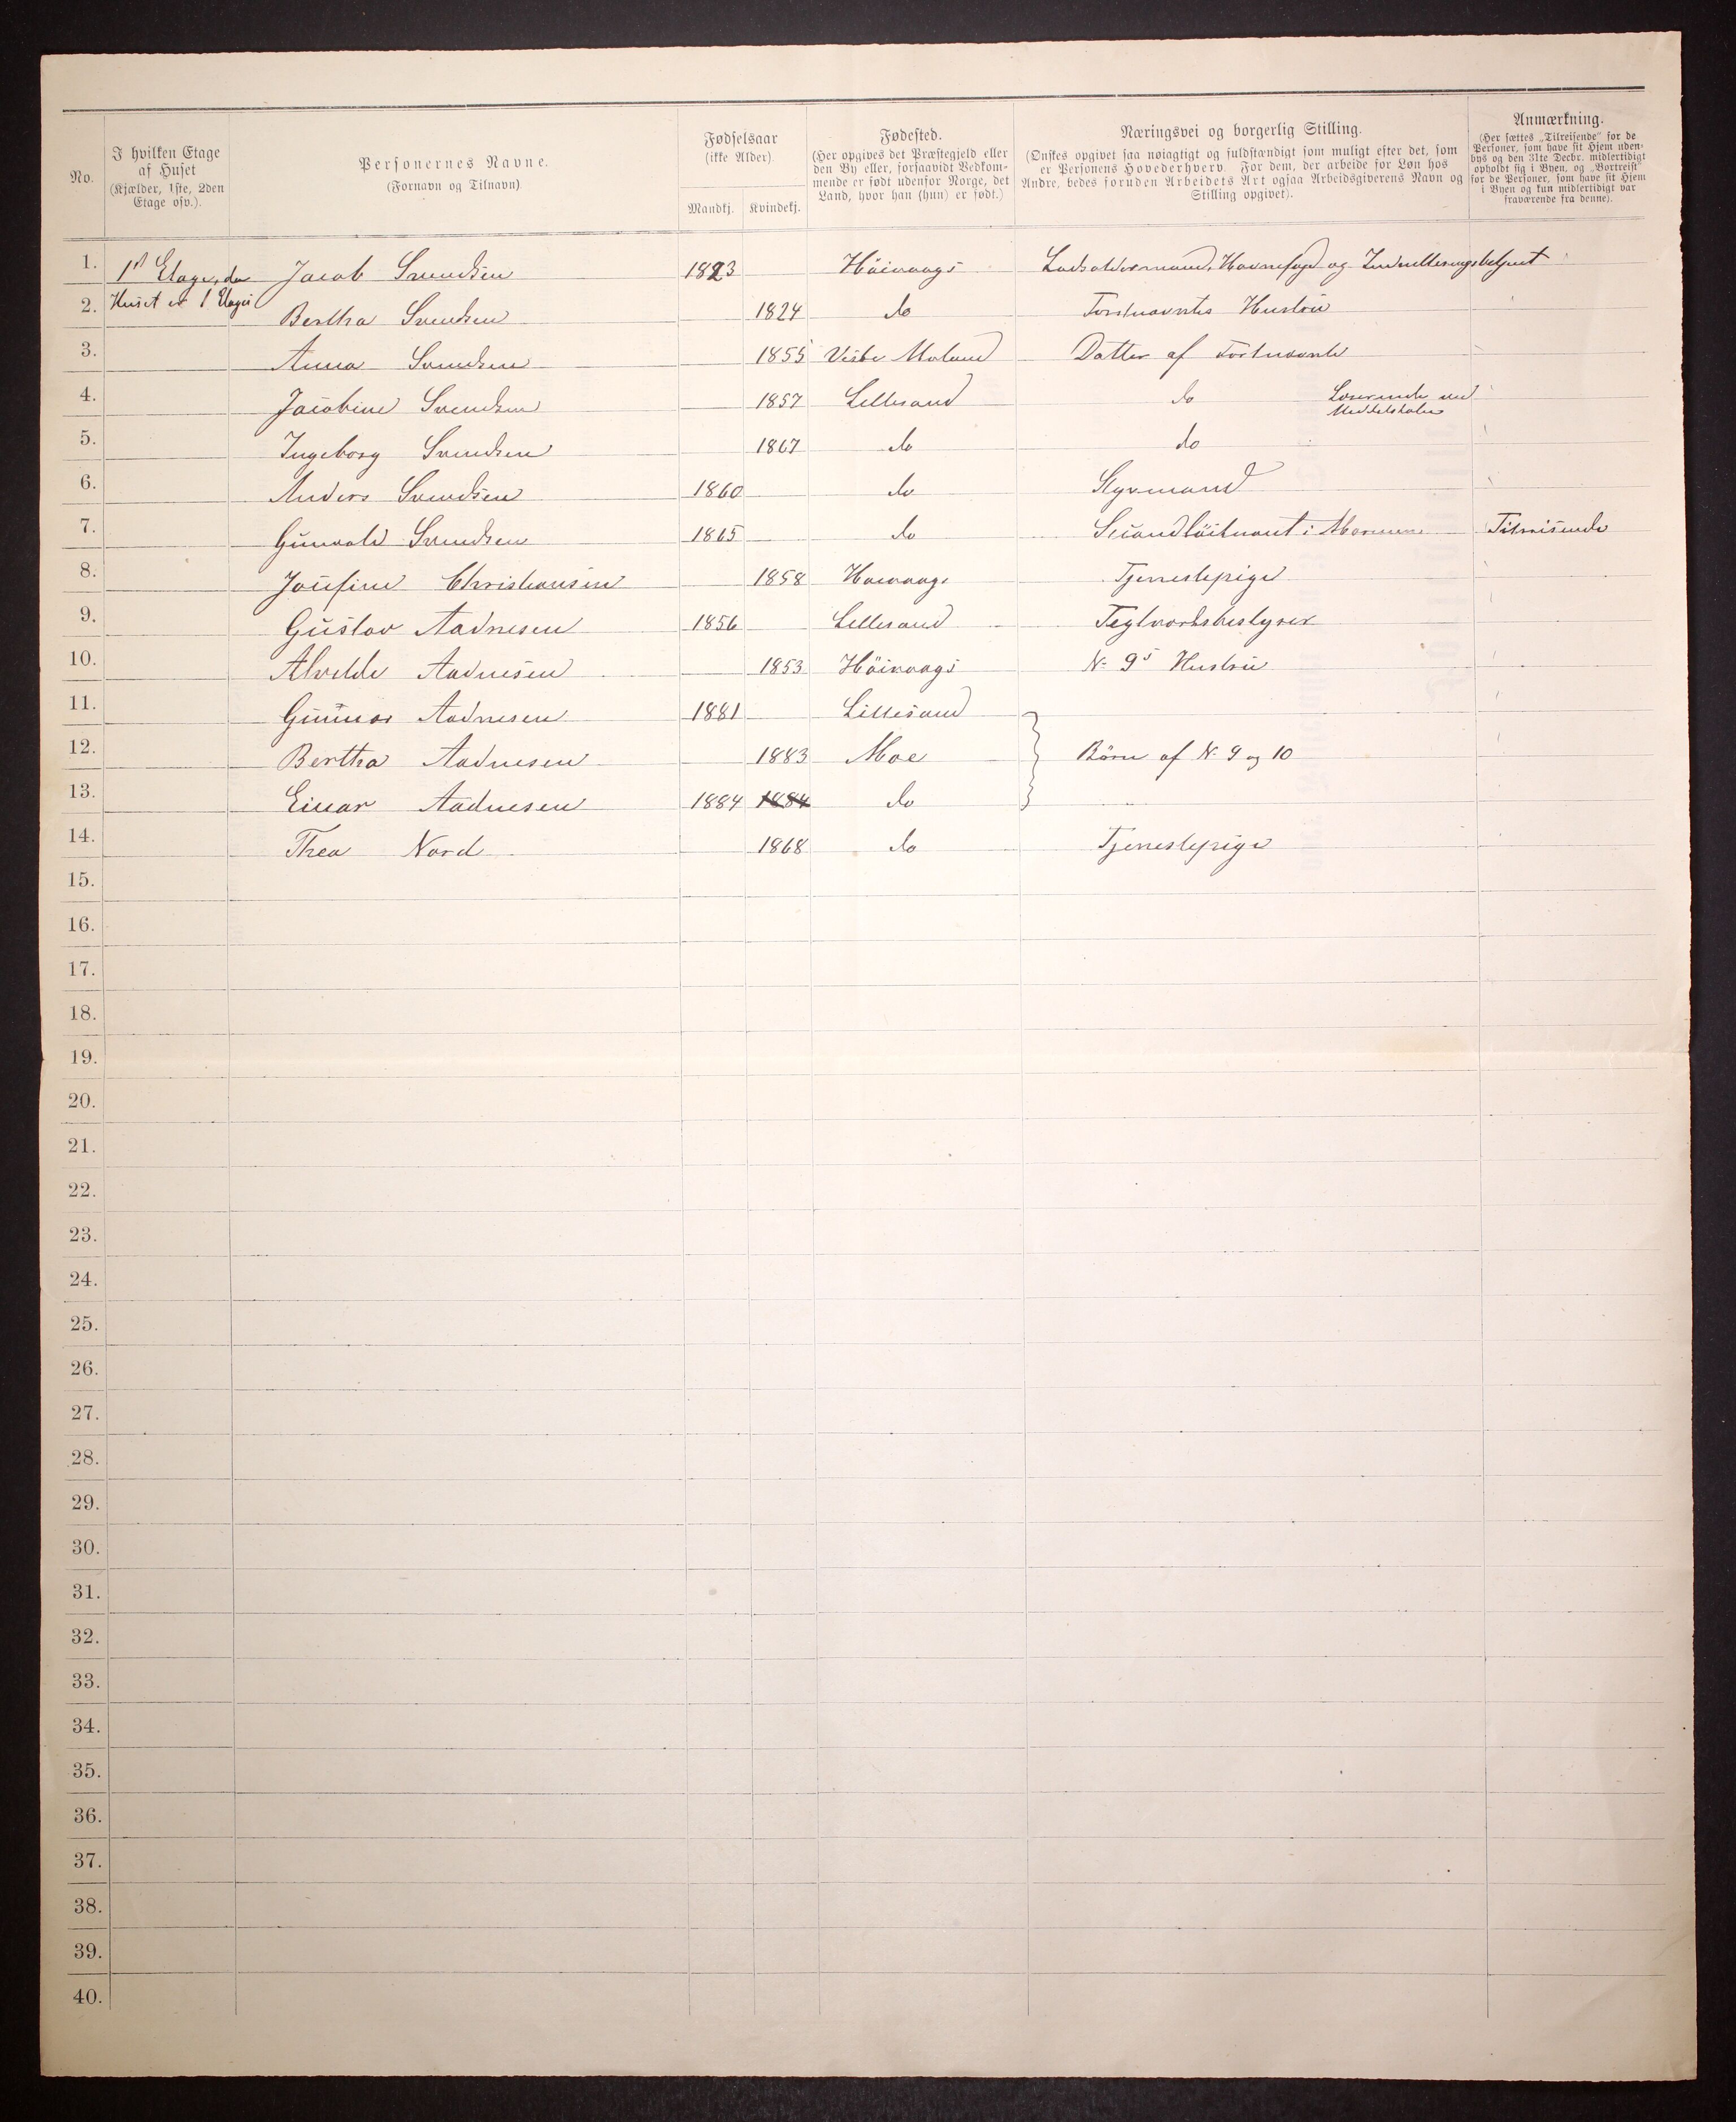 No.
I hvilken Etage
af Huset
(Kjælder, 1ste, 2den
Etage osv.).
Personernes Navne.
(Fornavn og Tilnavn)
Fødselsaar
(ikke Alder)
Mandkj. Kvindekj.
Fødested.
(Her opgives det Præstegjeld eller
den By eller, forsaavidt Vedkom-
mende er født udenfor Norge, det
Land, hvor han (hun) er født.)
Næringsvei og borgerlig Stilling.
(Ønskes opgivet saa nøiagtigt og fuldstændigt som muligt efter det, som
er Personens Hovederhverv. For dem, der arbeide for Løn hos
Andre, bedes foruden Arbeidets Art ogsaa Arbeidsgiverens Navn og
Stilling opgivet).
Anmærkning.
(Her sættes „Tilreisende" for de
Personer, som have sit Hjem uden-
bys og den 31te Decbr. midlertidigt
opholdt sig i Byen, og „Bortreist"
for de Personer, som have sit Hjem
i Byen og kun midlertidigt var
fraværende fra denne).
1. 1st Etage, da Jacob Svendsen 1823 Höivaags Lodsoldermand, Havnefoged og Indrulleringsbetjent
2. Huset er 1 Etages Bertha Svendsen 1824 do Forstnævntes Hustru
3. Anna Svendsen 1855 Vestre Moland Datter af Forstnævnte
4. Jacobine Svendsen 1857 Lillesand do Lærerinde ved
Middelskolen
5. Ingeborg Svendsen 1867 do do
6. Anders Svendsen 1860 do Styrmand
7. Gunvald Svendsen 1865 do Secondlöitnant i Marinen Tilreisende
8. Josefine Christiansen 1858 Tjenestepige
9. Gustav Aadnesen 1856 Lillesand Teglværksbestyrer
10. Alvilde Aadnesen 1853 Höivaags N. 9s Hustru
11. Gunnar Aadnesen 1881 Lillesand
12. Bertha Aadnesen 1883 Moe Börn af N. 9 og 10
13. Einar Aadnesen 1884 1884 do
14. Thea Nord 1868 do Tjenestepige
15.
16.
17.
18.
19.
20.
21.
22.
23.
24.
25.
26.
27.
28.
29.
30.
31.
32.
33.
34.
35.
36.
37.
38.
39.
40.